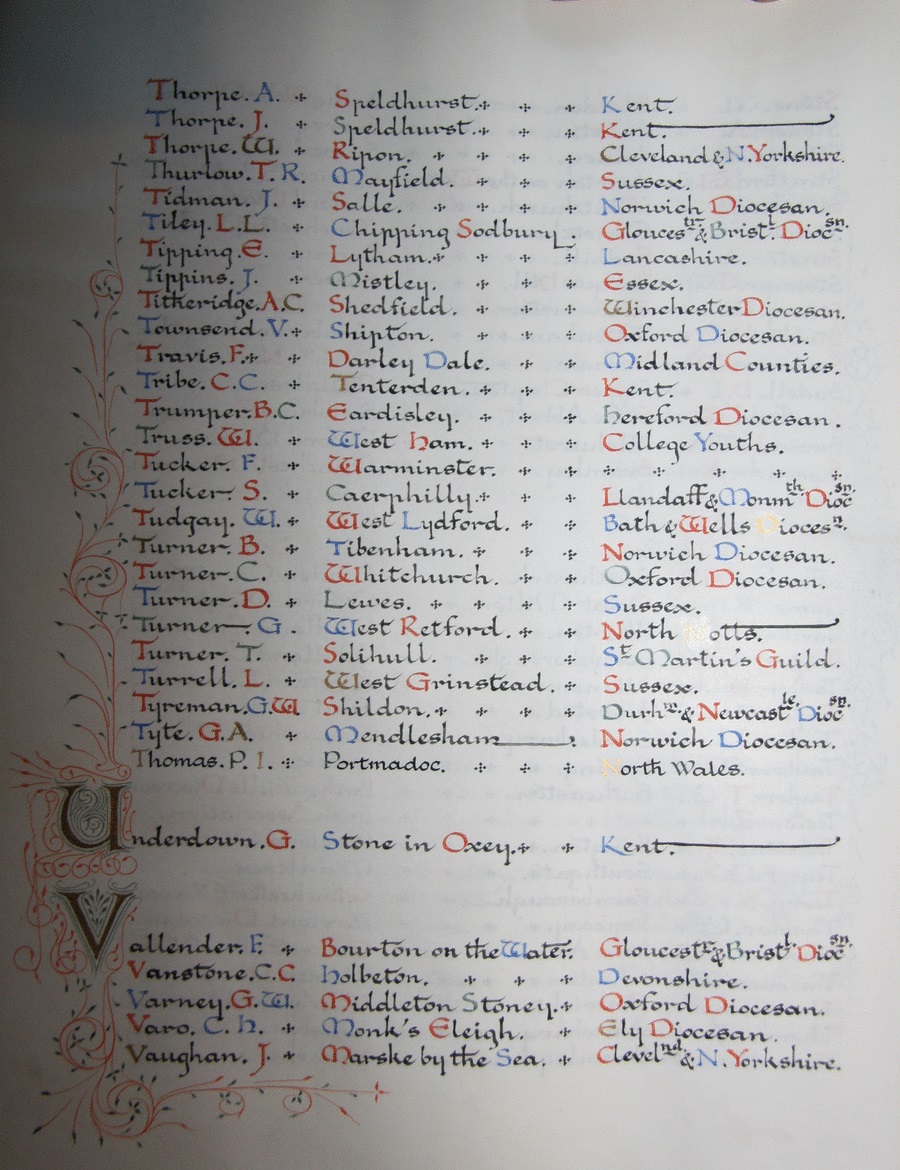 Thorpe. A. Speldhurst. Kent.
Thorpe. J. Speldhurst. Kent.
Thorpe. W. Ripon. Cleveland & N. Yorkshire.
Thurlow. T. R. Mayfield. Sussex.
Tidman. J. Salle. Norwich Diocesan.
Tiley. L. L. Chipping Sodbury. Gloucestr & Bristl. Diocsn.
Tipping. E. Lytham. Lancashire.
Tippins. J. Mistley. Essex.
Titheridge. A. C. Shedfield. Winchester Diocesan.
Townsend. V. Shipton. Oxford Diocesan.
Travis. F. Darley Dale. Midland Counties.
Tribe. C. C. Tenterden. Kent.
Trumper. B. C. Eardisley. Hereford Diocesan.
Truss. W. West Ham. College Youths.
Tucker. F. Warminster.
Tucker. S. Caerphilly. Llandaff & Monmth Diocsn.
Tudgay. W. West Lydford. Bath & Wells Diocesn.
Turner. B. Tibenham. Norwich Diocesan.
Turner. C. Whitchurch. Oxford Diocesan.
Turner. D. Lewes. Sussex.
Turner. G. West Retford. North Notts.
Turner. T. Solihull. St Martin's Guild.
Turrell. L. West Grinstead. Sussex.
Tyreman. G. W. Shildon. Durhm & Newcastle Diocsn.
Tyte. G. A. Mendlesham. Norwich Diocesan.
Thomas. P. I. Portmadoc. North Wales.
Underdown. G. Stone in Oxey. Kent.
Vallender. F. Bourton on the Water. Gloucestr & Bristl. Diocsn.
Vanstone. C. C Holbeton. Devonshire.
Varney. G. W. Middleton Stoney. Oxford Diocesan.
Varo. C. H. Monk's Eleigh. Ely Diocesan.
Vaughan. J. Marske by the Sea. Clevelnd & N. Yorkshire.